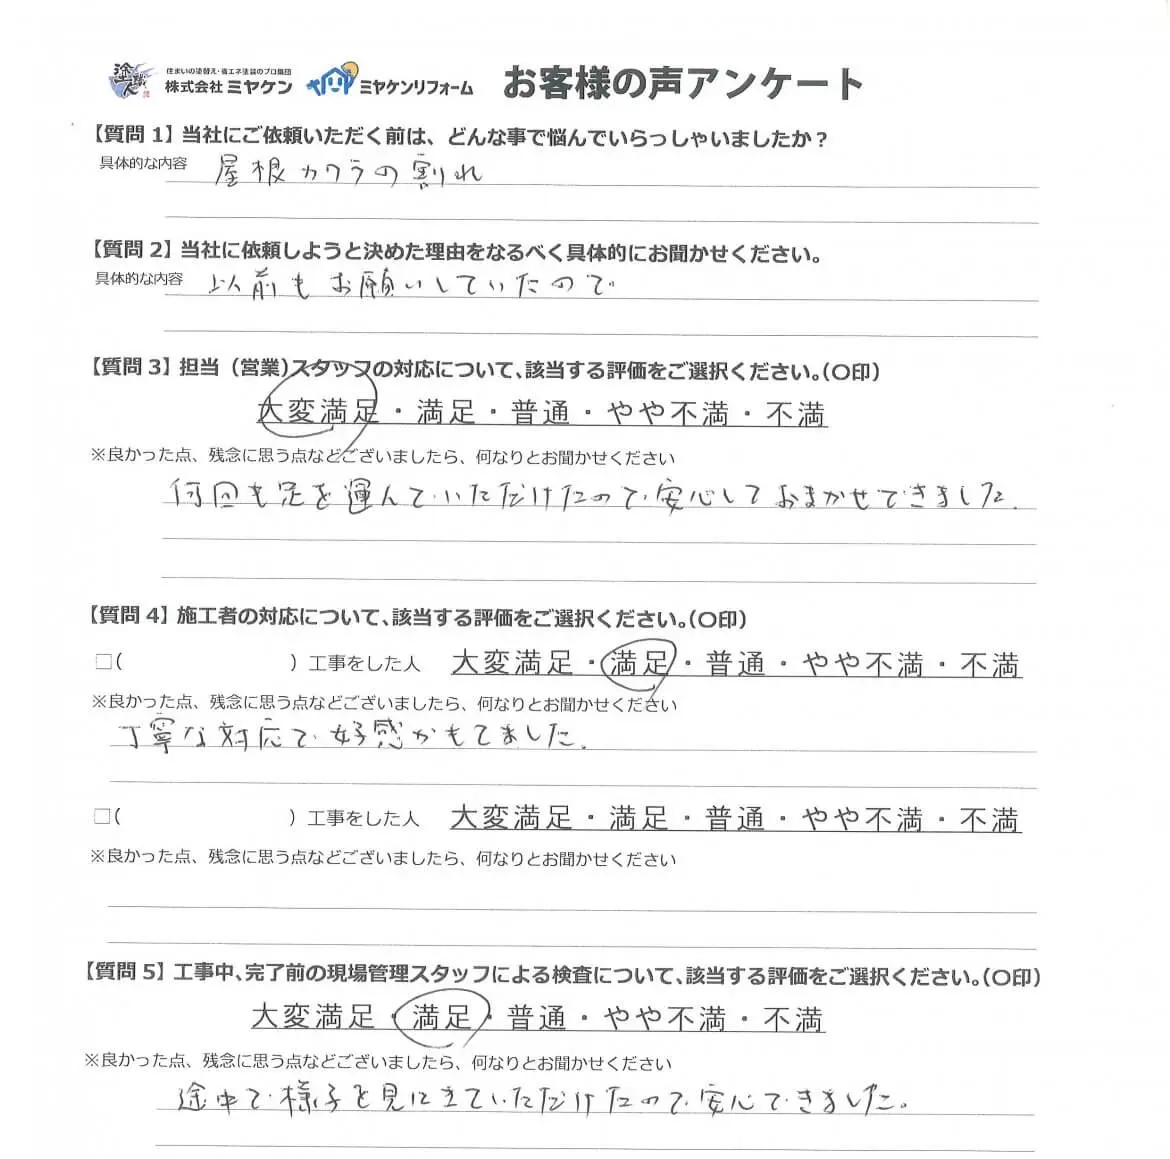 塗職人 住まいの塗替え・省エネ塗装のプロ集団
株式会社ミヤケン ミヤケンリフォーム お客様の声アンケート
【質問1】当社にご依頼いただく前は、どんな事で悩んでいらっしゃいましたか？
具体的な内容 屋根カワラの割れ
【質問2】当社に依頼しようと決めた理由をなるべく具体的にお聞かせください。
具体的な内容 以前もお願いしていたので
【質問3】担当（営業）スタッフの対応について、該当する評価をご選択ください。（○印）
大変満足・満足・普通・やや不満・不満
※良かった点、残念に思う点などございましたら、何なりとお聞かせください
何回も足を運んでいただけたので安心しておまかせできました.
【質問4】施工者の対応について、該当する評価をご選択ください。（○印）
□（ ）工事をした人 大変満足・満足・普通・やや不満・不満
※良かった点、残念に思う点などございましたら、何なりとお聞かせください
丁寧な対応で好感がもてました.
□（ ）工事をした人 大変満足・満足・普通・やや不満・不満
※良かった点、残念に思う点などございましたら、何なりとお聞かせください
【質問5】工事中、完了前の現場管理スタッフによる検査について、該当する評価をご選択ください。（○印）
大変満足・満足・普通・やや不満・不満
※良かった点、残念に思う点などございましたら、何なりとお聞かせください
途中で様子を見に来ていただけたので安心できました。